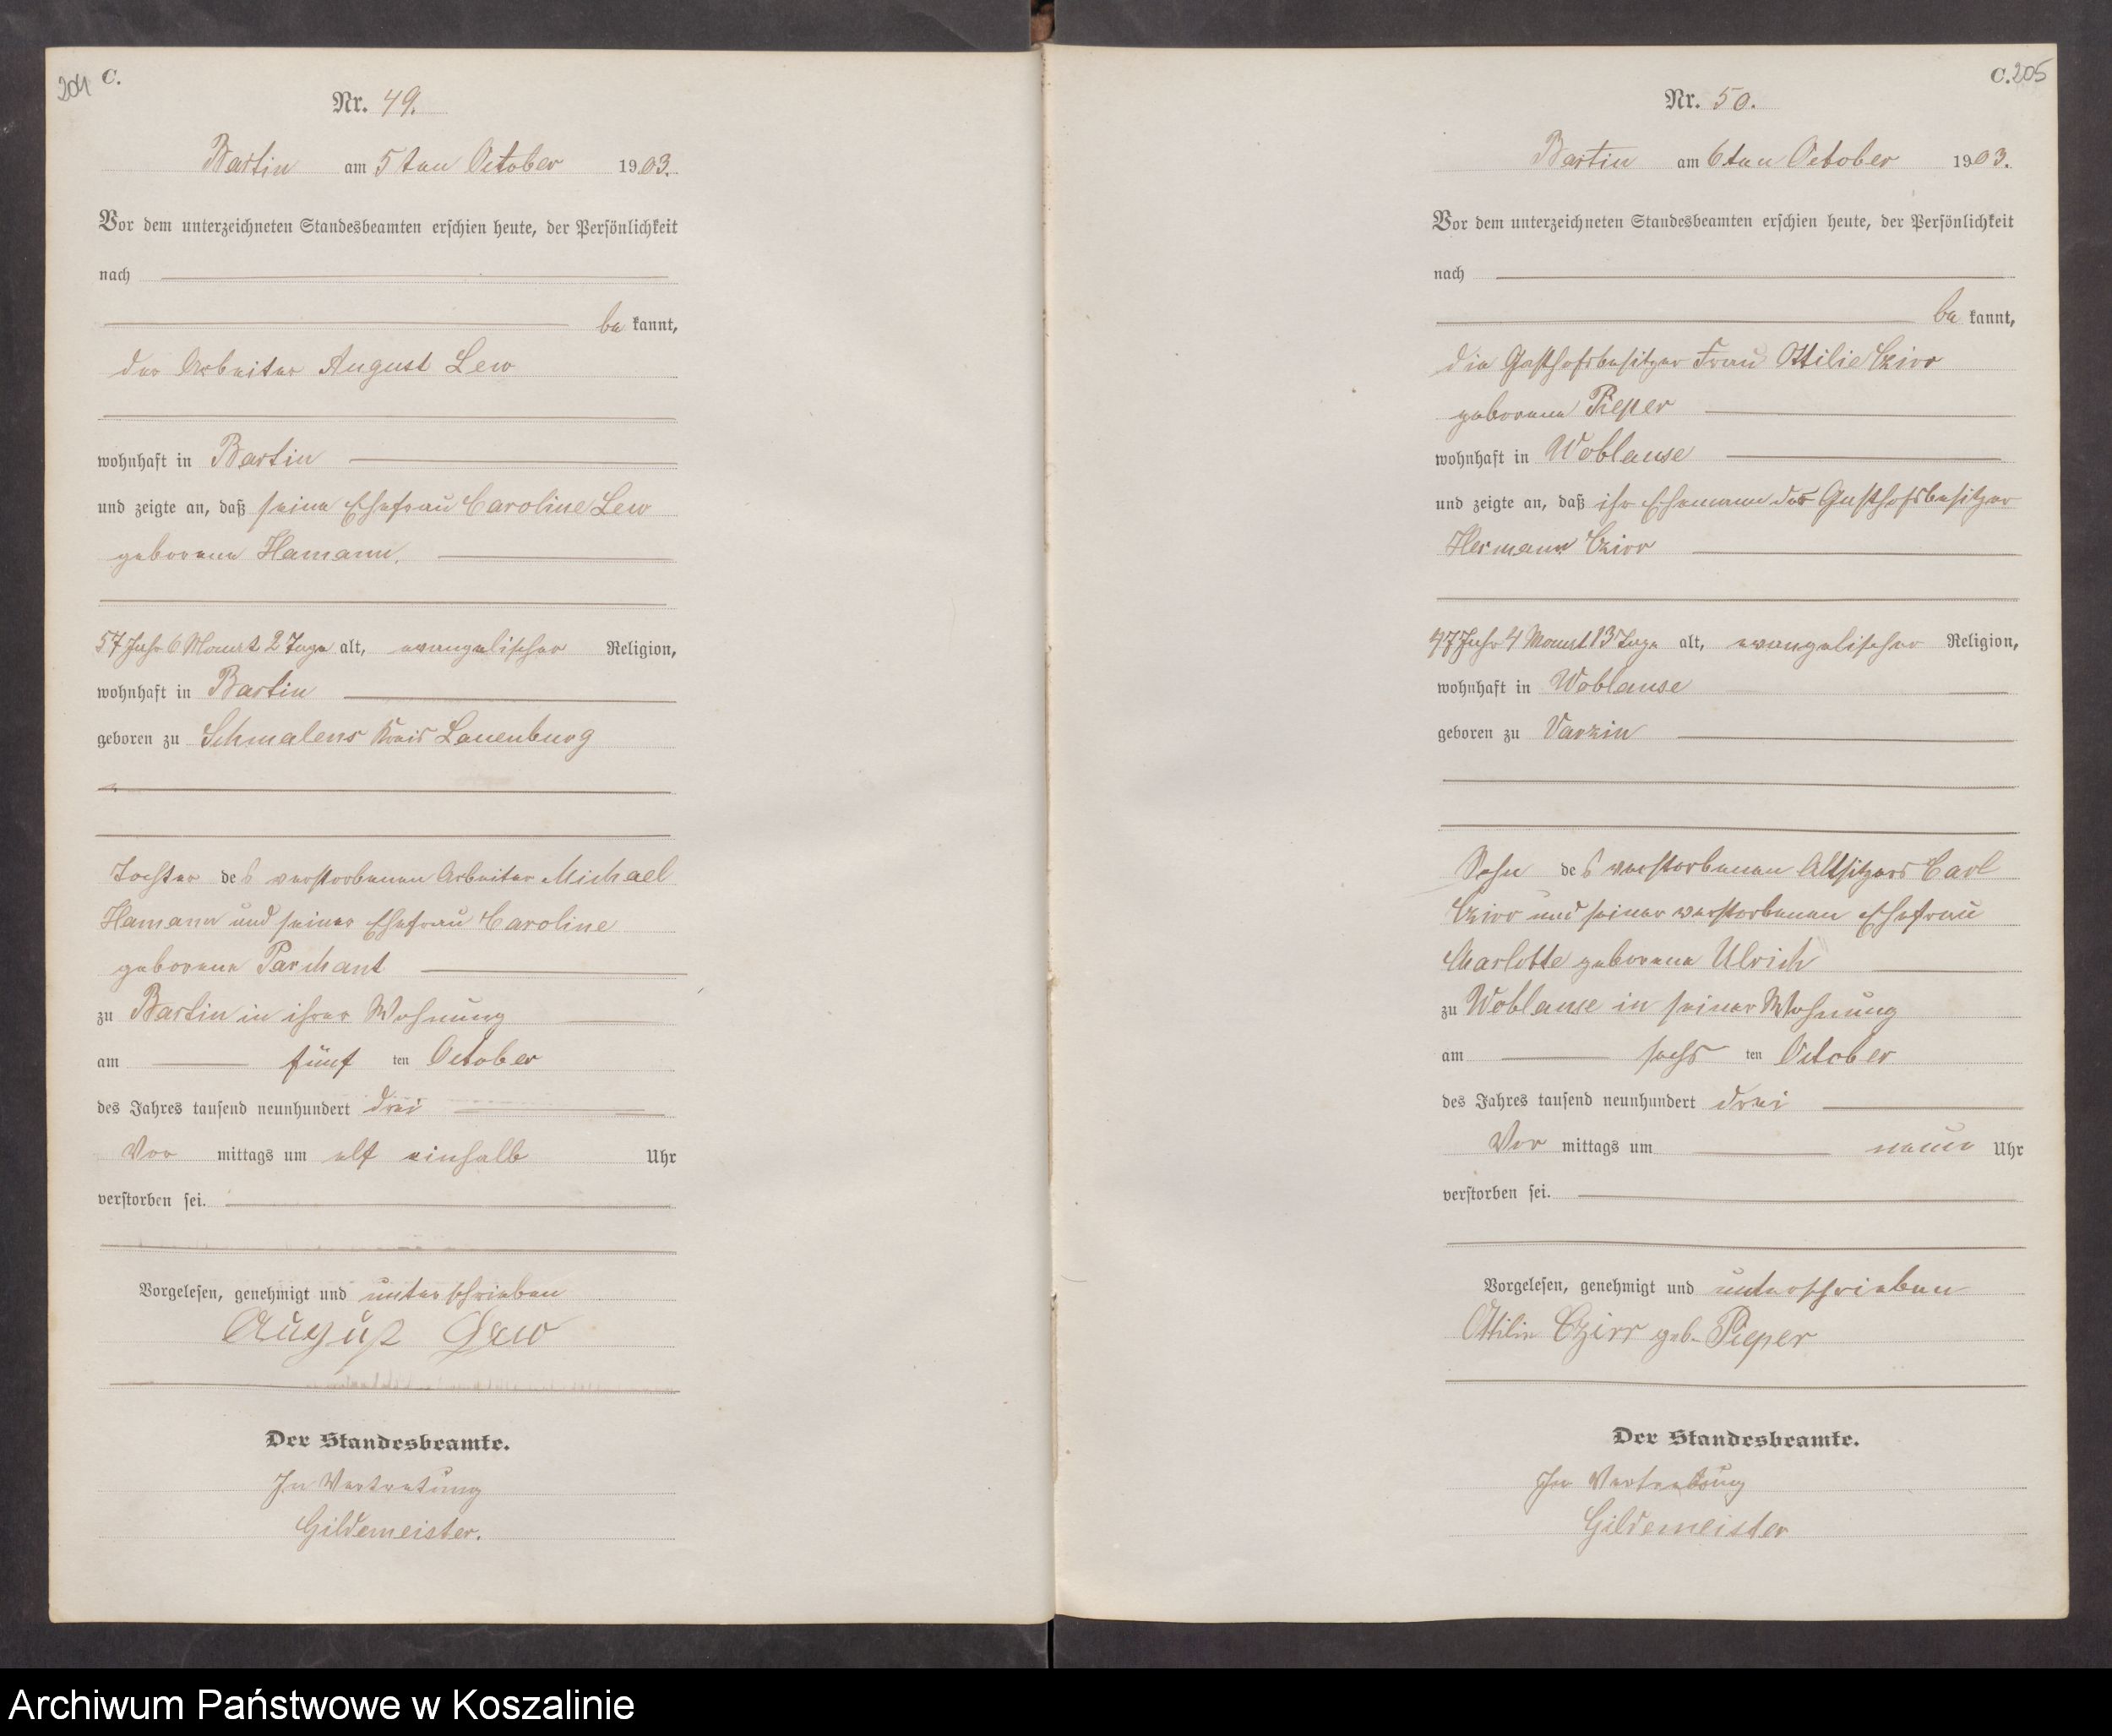 204 C.
Nr. 49.
Bartin am 5ten October 1903.
Vor dem unterzeichneten Standesbeamten erschien heute, der Persönlichkeit
nach
be kannt,
der Arbeiter August Lew
wohnhaft in Bartin
und zeigte an, daß seine Ehefrau Caroline Lew
geborene Hamann.
57 Jahr 6 Monat 2 Tage alt, evangelischer Religion,
wohnhaft in Bartin
geboren zu Schmalens Kreis Lauenburg
Tochter des verstorbenen Arbeiter Michael
Hamann und seiner Ehefrau Caroline
geborene Parchant
zu Bartin in ihrer Wohnung
am fünf ten October
des Jahres tausend neunhundert drei
Vor mittags um elf einhalb Uhr
verstorben sei.
Vorgelesen, genehmigt und unterschrieben
August Lew
Der Standesbeamte.
In Vertretung
Gildemeister.
C. 205
Nr. 50.
Bartin am 6ten October 1903.
Vor dem unterzeichneten Standesbeamten erschien heute, der Persönlichkeit
nach
be kannt,
die Gasthofsbesitzer Frau Ottilie Czirr
geborene Pieper
wohnhaft in Woblanse
und zeigte an, daß ihr Ehemann der Gasthofsbesitzer
Hermann Czirr
47 Jahr 4 Monat 13 Tage alt, evangelischer Religion,
wohnhaft in Woblanse
geboren zu Varzin
Sohn des verstorbenen Altsitzers Carl
Czirr und seiner verstorbenen Ehefrau
Charlotte geborene Ulrich
zu Woblanse in seiner Wohnung
am sechs ten October
des Jahres tausend neunhundert drei
Vor mittags um neun Uhr
verstorben sei.
Vorgelesen, genehmigt und unterschrieben
Ottilie Czirr geb. Pieper
Der Standesbeamte.
In Vertretung
Gildemeister
Archiwum Państwowe w Koszalinie